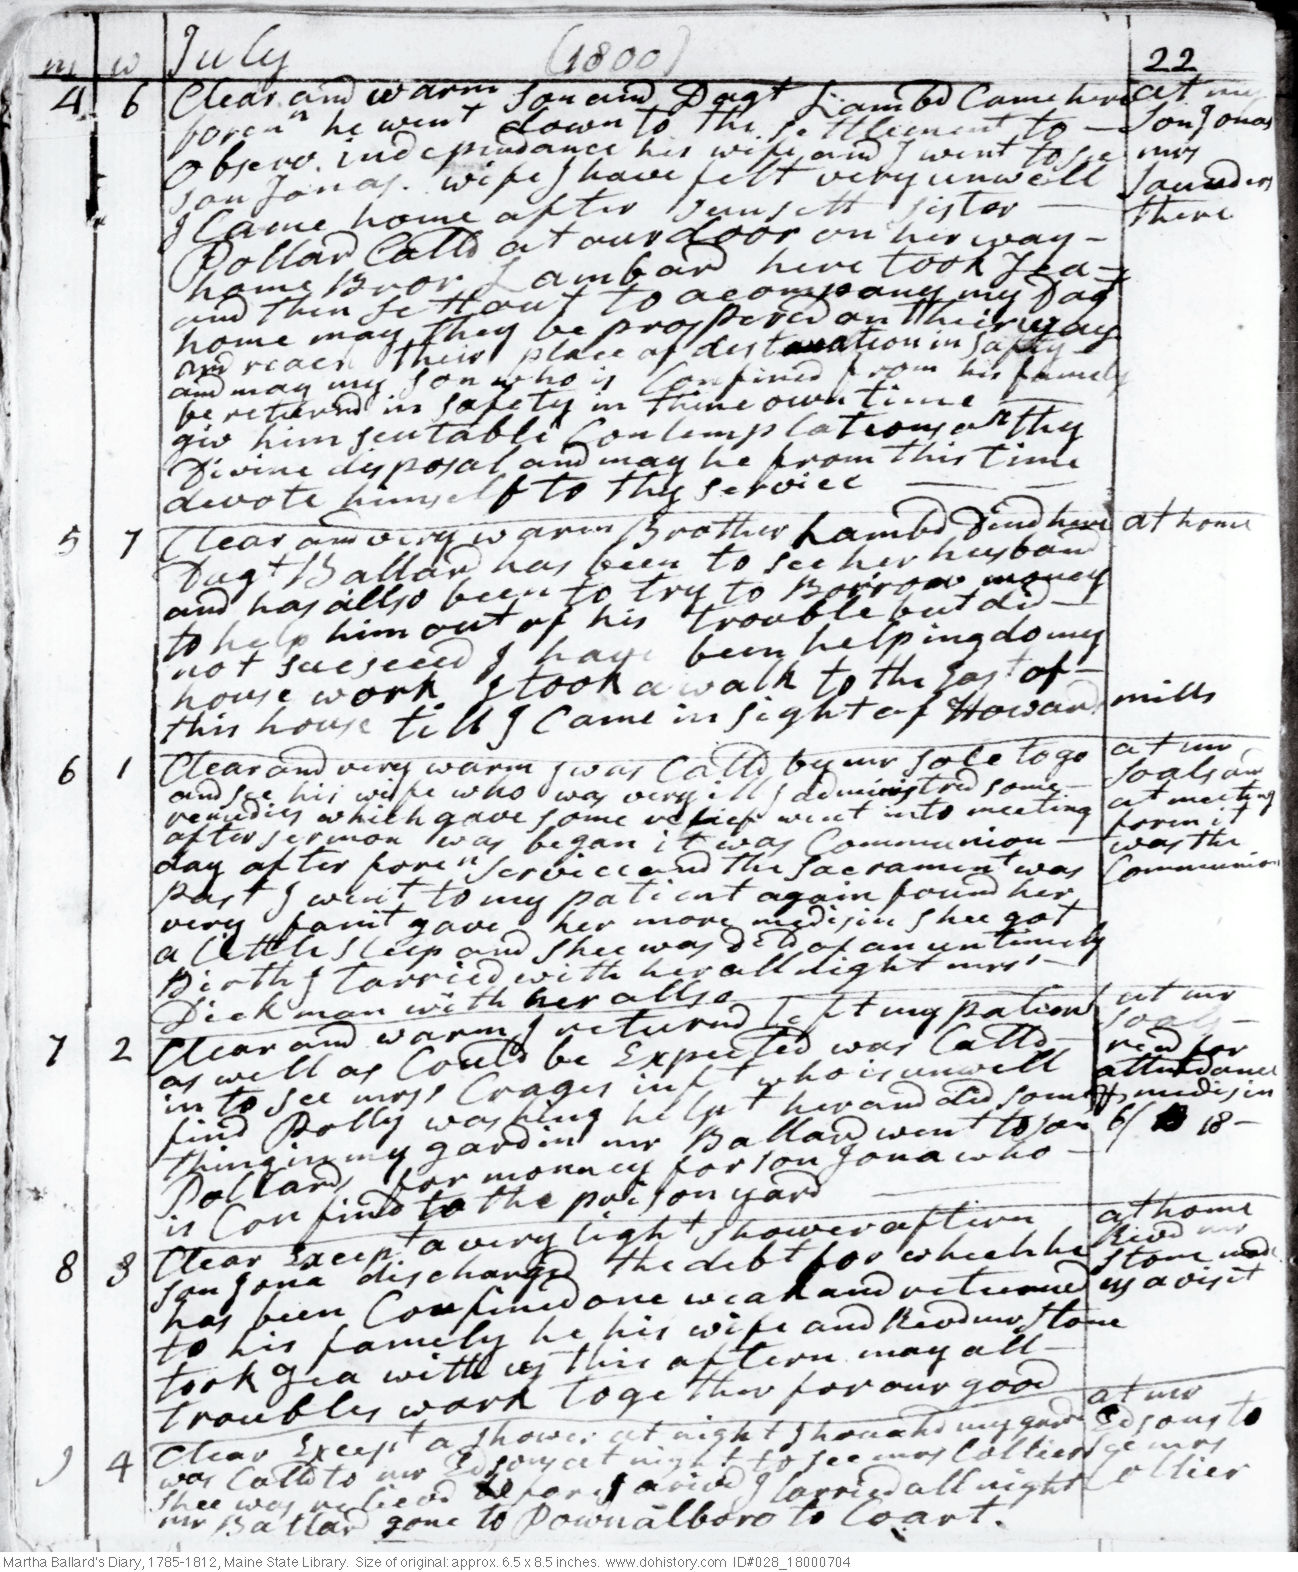 m w July (1800) 22
4 6 Clear and warm Son and Dagt Lambd Came here at my
foren n he went down to the settlement to — son Jonas
observ independance his wife and I went to see mrs
son Jonas. wife I have felt very unwell Saunders
I Came home after sunsett sister — there
Pollard Calld at our door on her way –
home Bror Lambard here took Tea –
and then sett out to acompany my Dag
home may they be prosperd on their way
and reach their place of destanation in safty
and may my son who is Confined from his famely
be returnd in safety in thine own time
giv him seutable Contemplations on thy
Divine disposal and may he from this time
devote himself to thy service
5 7 Clear and very warm Brother Lambd Dind here at home
Dagt Ballard has been to see her husband
and has allso been to try to Borrow money
to help him out of his trouble but did —
not sucseed I have been helping do my
house work I took a walk to the East of –
this house till I Came in sight of Howard mills
6 1 Clear and very warm I was Calld by mr sole to go at mr
and see his wife who was very ill I administred some Soals and
remidies which gave some relief went into meeting at meeting
after sermon was began it was Communion — foren it
day after foren n service and the Sacrament was was the
past I went to my patient again found her Communion
very faint gave her more medisin shee got
a little sleep and shee was dld of an untimely
Birth I tarried with her all night mrs –
Dickman with her allso
7 2 Clear and warm I returnd left my patien at mr
as well as Could be Expected was Calld Soals –
in to see mrss Crages inft who is unwell recd for
find Polly washing helpt her and did some attendance
thing in my gardin mr Ballard went to son & medisin
Pollards for monney for son Jona who – 6/ 18 –
is Confind to the prison yard
8 3 Clear Except a very light shower aftern at home
son Jona discharged the debt for which he Revd mr
has been Confined one weak and returned Stone made
to his famely he his wife and Revd mr Stone us a visit
took Tea with us this aftern may all –
troubles work together for our good
9 4 Clear Except a shower at night I howd my gard at mr
was Calld to mr Edsons at night to see mrs Collier Edsons to
shee was relievd before I arivd I tarried all night se mrs
mr Ballard gone to Pownalboro to Coart. Collier
Martha Ballard's Diary, 1785-1812, Maine State Library. Size of original: approx. 6.5 x 8.5 inches. www.dohistory.com ID#028_18000704